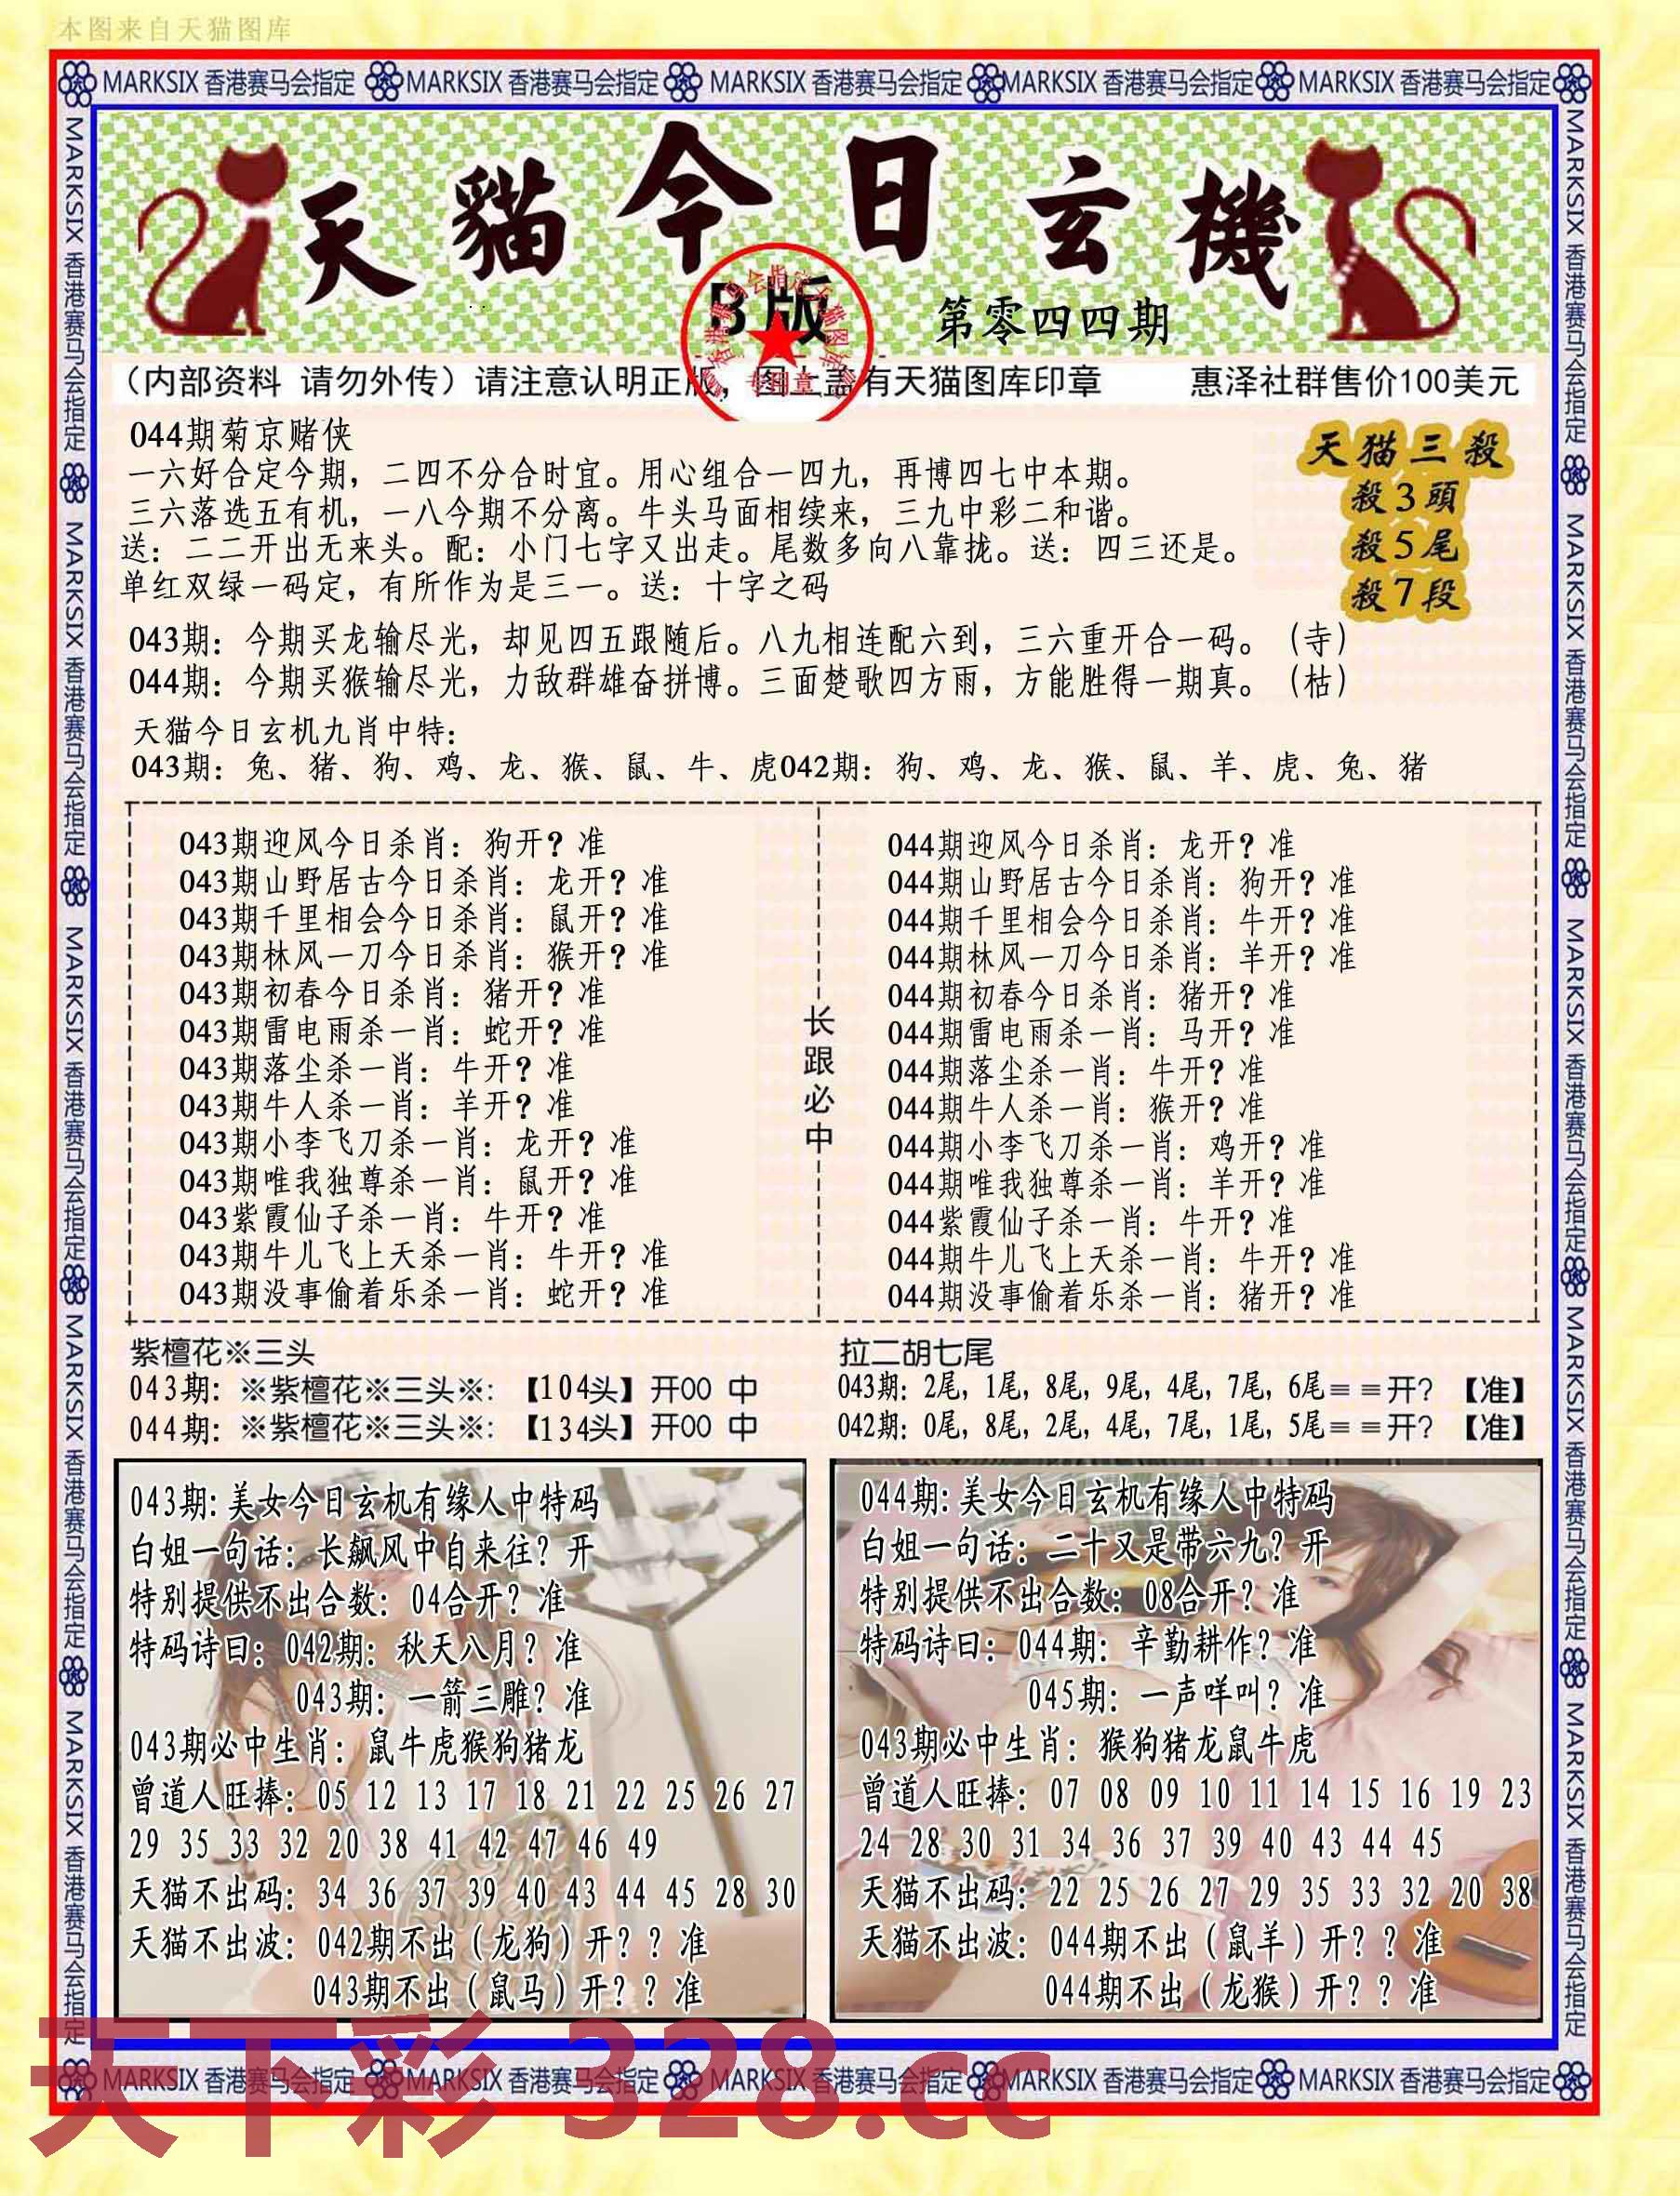 本图来自天猫图库
MARKSIX 香港赛马会指定 MARKSIX 香港赛马会指定 MARKSIX 香港赛马会指定 MARKSIX 香港赛马会指定 MARKSIX 香港赛马会指定
天貓今日玄機
B版
第零四四期
(内部资料 请勿外传)请注意认明正版,图上盖有天猫图库印章 惠泽社群售价100美元
专用章
044期菊京赌侠
一六好合定今期,二四不分合时宜。用心组合一四九,再博四七中本期。
三六落选五有机,一八今期不分离。牛头马面相续来,三九中彩二和谐。
送:二二开出无来头。配:小门七字又出走。尾数多向八靠拢。送:四三还是。
单红双绿一码定,有所作为是三一。送:十字之码
天猫三殺
殺3頭
殺5尾
殺7段
043期:今期买龙输尽光,却见四五跟随后。八九相连配六到,三六重开合一码。(寺)
044期:今期买猴输尽光,力敌群雄奋拼博。三面楚歌四方雨,方能胜得一期真。(枯)
天猫今日玄机九肖中特:
043期:兔、猪、狗、鸡、龙、猴、鼠、牛、虎042期:狗、鸡、龙、猴、鼠、羊、虎、兔、猪
043期迎风今日杀肖:狗开?准
043期山野居古今日杀肖:龙开?准
043期千里相会今日杀肖:鼠开?准
043期林风一刀今日杀肖:猴开?准
043期初春今日杀肖:猪开?准
043期雷电雨杀一肖:蛇开?准
043期落尘杀一肖:牛开?准
043期牛人杀一肖:羊开?准
043期小李飞刀杀一肖:龙开?准
043期唯我独尊杀一肖:鼠开?准
043紫霞仙子杀一肖:牛开?准
043期牛儿飞上天杀一肖:牛开?准
043期没事偷着乐杀一肖:蛇开?准
长跟必中
044期迎风今日杀肖:龙开?准
044期山野居古今日杀肖:狗开?准
044期千里相会今日杀肖:牛开?准
044期林风一刀今日杀肖:羊开?准
044期初春今日杀肖:猪开?准
044期雷电雨杀一肖:马开?准
044期落尘杀一肖:牛开?准
044期牛人杀一肖:猴开?准
044期小李飞刀杀一肖:鸡开?准
044期唯我独尊杀一肖:羊开?准
044紫霞仙子杀一肖:牛开?准
044期牛儿飞上天杀一肖:牛开?准
044期没事偷着乐杀一肖:猪开?准
紫檀花※三头
043期:※紫檀花※三头※:【104头】开00 中
044期:※紫檀花※三头※:【134头】开00 中
拉二胡七尾
043期:2尾,1尾,8尾,9尾,4尾,7尾,6尾==开?【准】
042期:0尾,8尾,2尾,4尾,7尾,1尾,5尾==开?【准】
043期:美女今日玄机有缘人中特码
白姐一句话:长飙风中自来往?开
特别提供不出合数:04合开?准
特码诗曰:042期:秋天八月?准
043期:一箭三雕?准
043期必中生肖:鼠牛虎猴狗猪龙
曾道人旺捧:05 12 13 17 18 21 22 25 26 27
29 35 33 32 20 38 41 42 47 46 49
天猫不出码:34 36 37 39 40 43 44 45 28 30
天猫不出波:042期不出(龙狗)开??准
043期不出(鼠马)开??准
044期:美女今日玄机有缘人中特码
白姐一句话:二十又是带六九?开
特别提供不出合数:08合开?准
特码诗曰:044期:辛勤耕作?准
045期:一声咩叫?准
043期必中生肖:猴狗猪龙鼠牛虎
曾道人旺捧:07 08 09 10 11 14 15 16 19 23
24 28 30 31 34 36 37 39 40 43 44 45
天猫不出码:22 25 26 27 29 35 33 32 20 38
天猫不出波:044期不出(鼠羊)开??准
044期不出(龙猴)开??准
MARKSIX 香港赛马会指定 MARKSIX 香港赛马会指定 MARKSIX 香港赛马会指定 MARKSIX 香港赛马会指定 MARKSIX 香港赛马会指定
MARKSIX 香港赛马会指定 MARKSIX 香港赛马会指定 MARKSIX 香港赛马会指定 MARKSIX 香港赛马会指定 MARKSIX 香港赛马会指定
MARKSIX 香港赛马会指定 MARKSIX 香港赛马会指定 MARKSIX 香港赛马会指定 MARKSIX 香港赛马会指定 MARKSIX 香港赛马会指定
天下彩 328.cc